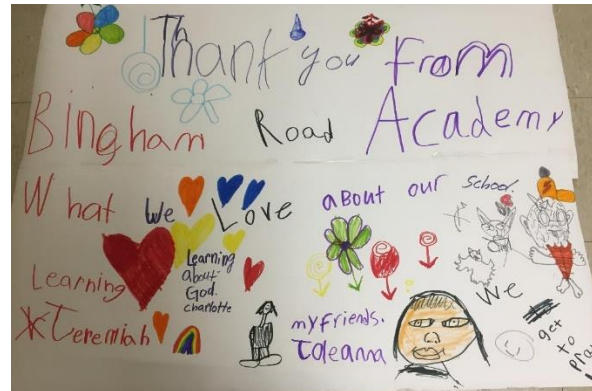 Thank you From
Bingham Road Academy
What We Love about our School.
Learning
Jeremiah
Learning
about
God.
charlotte
my friends.
Taleanna
We
get
to
pray